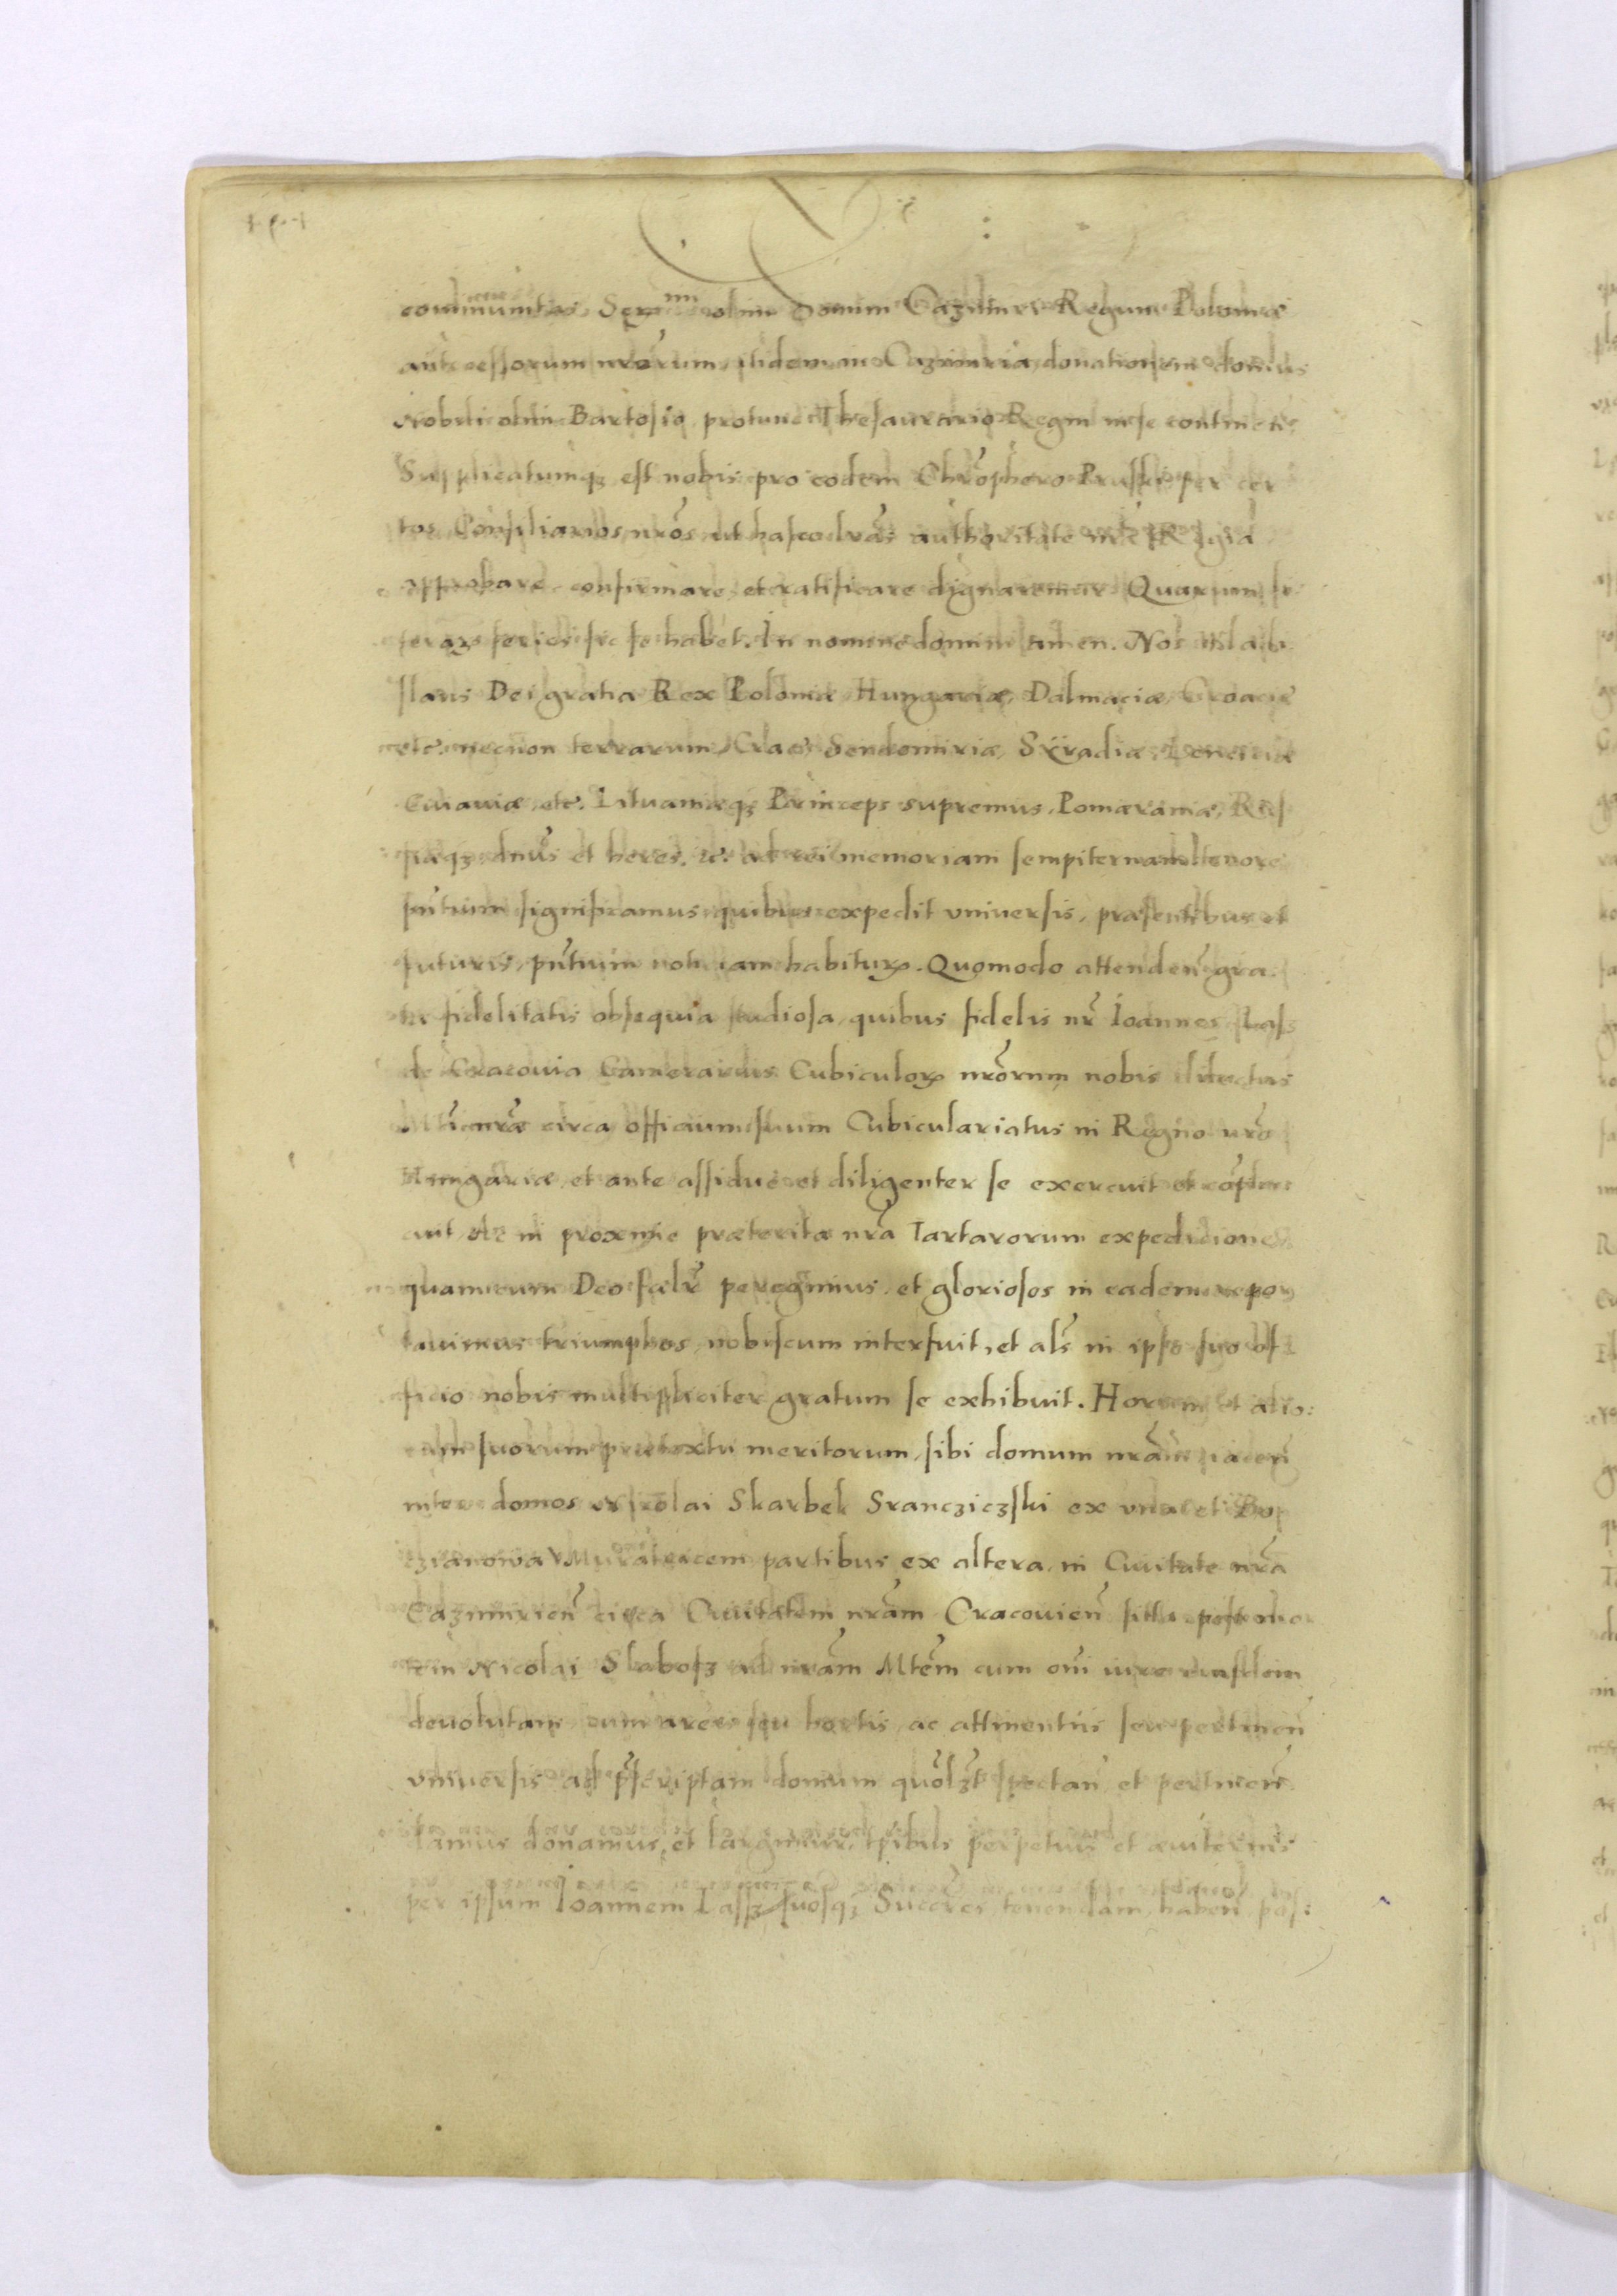 communitas Ser^mi olim Domini Cazimiri Regum Poloniæ
antecessorum nrōrum, itidem in Cazimiria, donationem domus
Nobili olim Bartosio, protunc Thesaurario Regni in se continen̄
Supplicatumqз est nobis pro eodem Chrōphero Pruski per cer
tos Consiliarios nrōs ut hasce lrās authoritate nrā Regia
approbare, confirmare, et ratificare dignaremur. Quarum
series sic se habet. In nomine domini amen. Nos Wladi
slaus Dei gratia Rex Poloniæ, Hungariæ, Dalmaciæ, Croaciæ
etc. necnon terrarum, Crac̄, Sendomiriæ, Siradiæ, Lenciciæ
Cuiauiæ, etc. Lituaniæqз Princeps supremus, Pomæraniæ, Rus
siæqз dnūs et heres. etc. ad rei memoriam sempiternam tenore
pn̄tium significamus quibus expedit vniuersis, præsentibus et
futuris, pn̄tium notitiam habituꝝ. Quomodo attenden̄ gra
ta fidelitatis obsequia studiosa, quibus fidelis nr̄ Ioannes
de Cracouia Camerarius Cubiculoꝝ nrōrum nobis dilectus
nrǣ circa officium suum Cubiculariatus in Regno nrō
Hungariæ, et ante assidue et diligenter se exercuit et
in proxime præterita nrā Tartarorum expedicione
quam cum Deo peregimus, et gloriosos in eadem repor
tauimus triumphos, nobiscum interfuit, et als̄ in ipso suo of
ficio nobis multipliciter gratum se exhibuit. Horum et alio:
rum suorum prætextu meritorum, sibi domum nrām iacen̄
inter domos Nicolai Skarbek Srancziczski ex vna et
partibus ex altera, in Ciuitate nrā
Cazimirien̄ circa Ciuitatem nrām Cracouien̄ post mor
tem Nicolai Slabosz ad nrām Mtēm cum om̄i iure eiusdem
deuolutam, cum area seu hortis, ac attinentiis seu pertinen̄
vniuersis ad pr̄scriptam domum quōlзt spectan̄ et pertinen̄
damus donamus, et largimur, tpībus perpetuis et æuiternis
per ipsum Ioannem Iassz suosqз Succes̄res, tenendam, haben̄, pos: